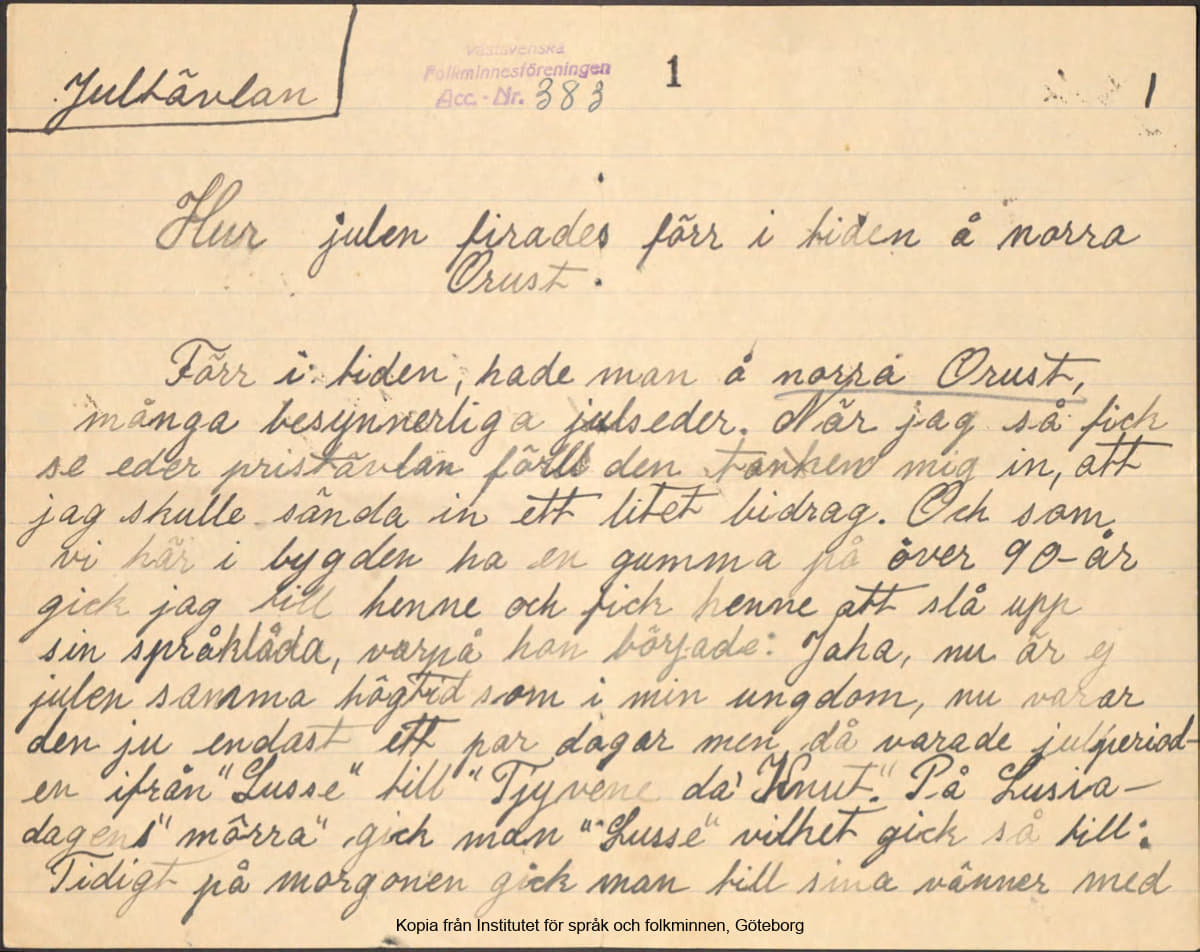 Jultävlan
Västsvenska
Folkminnesföreningen
Acc. - Nr. 383
1
1
Hur julen firades förr i tiden å norra
Orust.
Förr i tiden, hade man å norra Orust,
många besynnerliga julseder. När jag så fick
se eder pristävlan föll den tanken mig in, att
jag skulle sända in ett litet bidrag. Och som
vi här i bygden ha en gumma på över 90-år
gick jag till henne och fick henne att slå upp
sin språklåda, varpå hon började: Jaha, nu är ej
julen samma högtid som i min ungdom, nu varar
den ju endast ett par dagar men då varade julperiod-
en ifrån "Lusse" till "Tjyvene da' Knut." På Lusia-
dagens "mörra" gick man "Lusse" vilket gick så till:
Tidigt på morgonen gick man till sina vänner med
Kopia från Institutet för språk och folkminnen, Göteborg